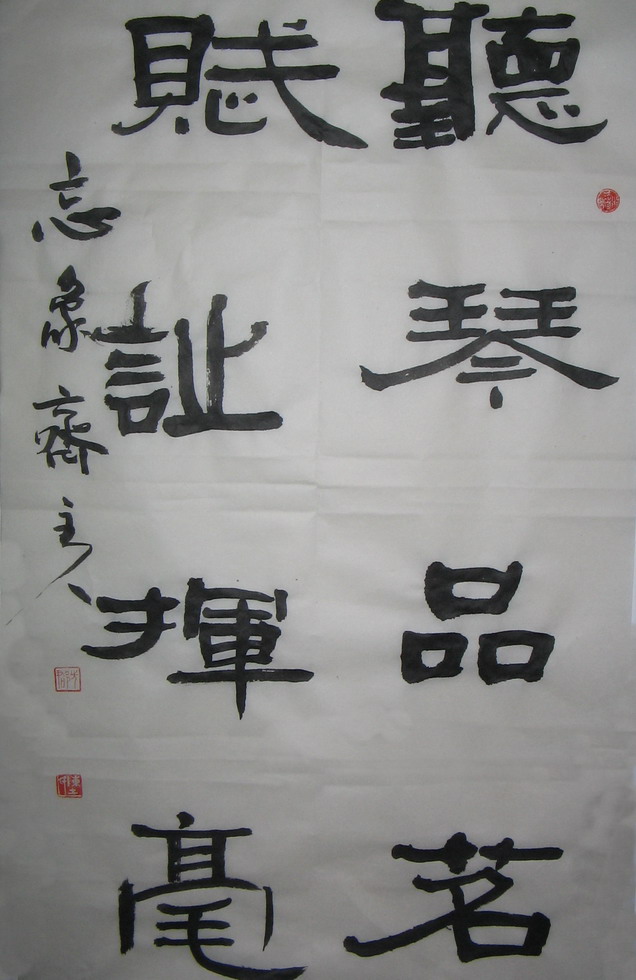 聽琴品茗
賦訨揮毫
忘象齋主人